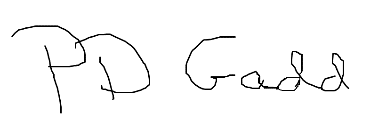 PD Gadd